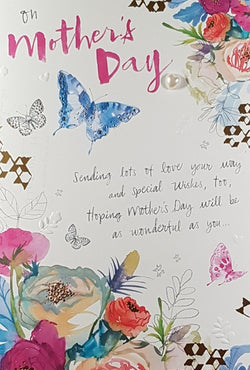 On
Mother's
Day
Sending lots of love your way
and special wishes, too,
Hoping Mother's Day will be
as wonderful as you...